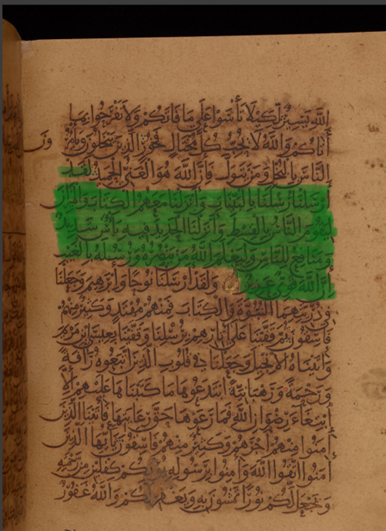 الله يسير لكيلا تأسوا على ما فاتكم ولا تفرحوا بما
آتاكم والله لا يحب كل مختال فخور الذين يبخلون ويأمرون
الناس بالبخل ومن يتول فإن الله هو الغني الحميد لقد
أرسلنا رسلنا بالبينات وأنزلنا معهم الكتاب والميزان
ليقوم الناس بالقسط وأنزلنا الحديد فيه بأس شديد
ومنافع للناس وليعلم الله من ينصره ورسله بالغيب
إن الله قوي عزيز ولقد أرسلنا نوحا وإبرهيم وجعلنا
في ذريتهما النبوة والكتاب فمنهم مهتد وكثير منهم
فاسقون ثم قفينا على آثارهم برسلنا وقفينا بعيسى ابن مريم
وآتيناه الإنجيل وجعلنا في قلوب الذين اتبعوه رأفة
ورحمة ورهبانية ابتدعوها ما كتبناها عليهم إلا
ابتغاء رضوان الله فما رعوها حق رعايتها فآتينا الذين
آمنوا منهم أجرهم وكثير منهم فاسقون يا أيها الذين
آمنوا اتقوا الله وآمنوا برسوله يؤتكم كفلين من رحمته
ويجعل لكم نورا تمشون به ويغفر لكم والله غفور